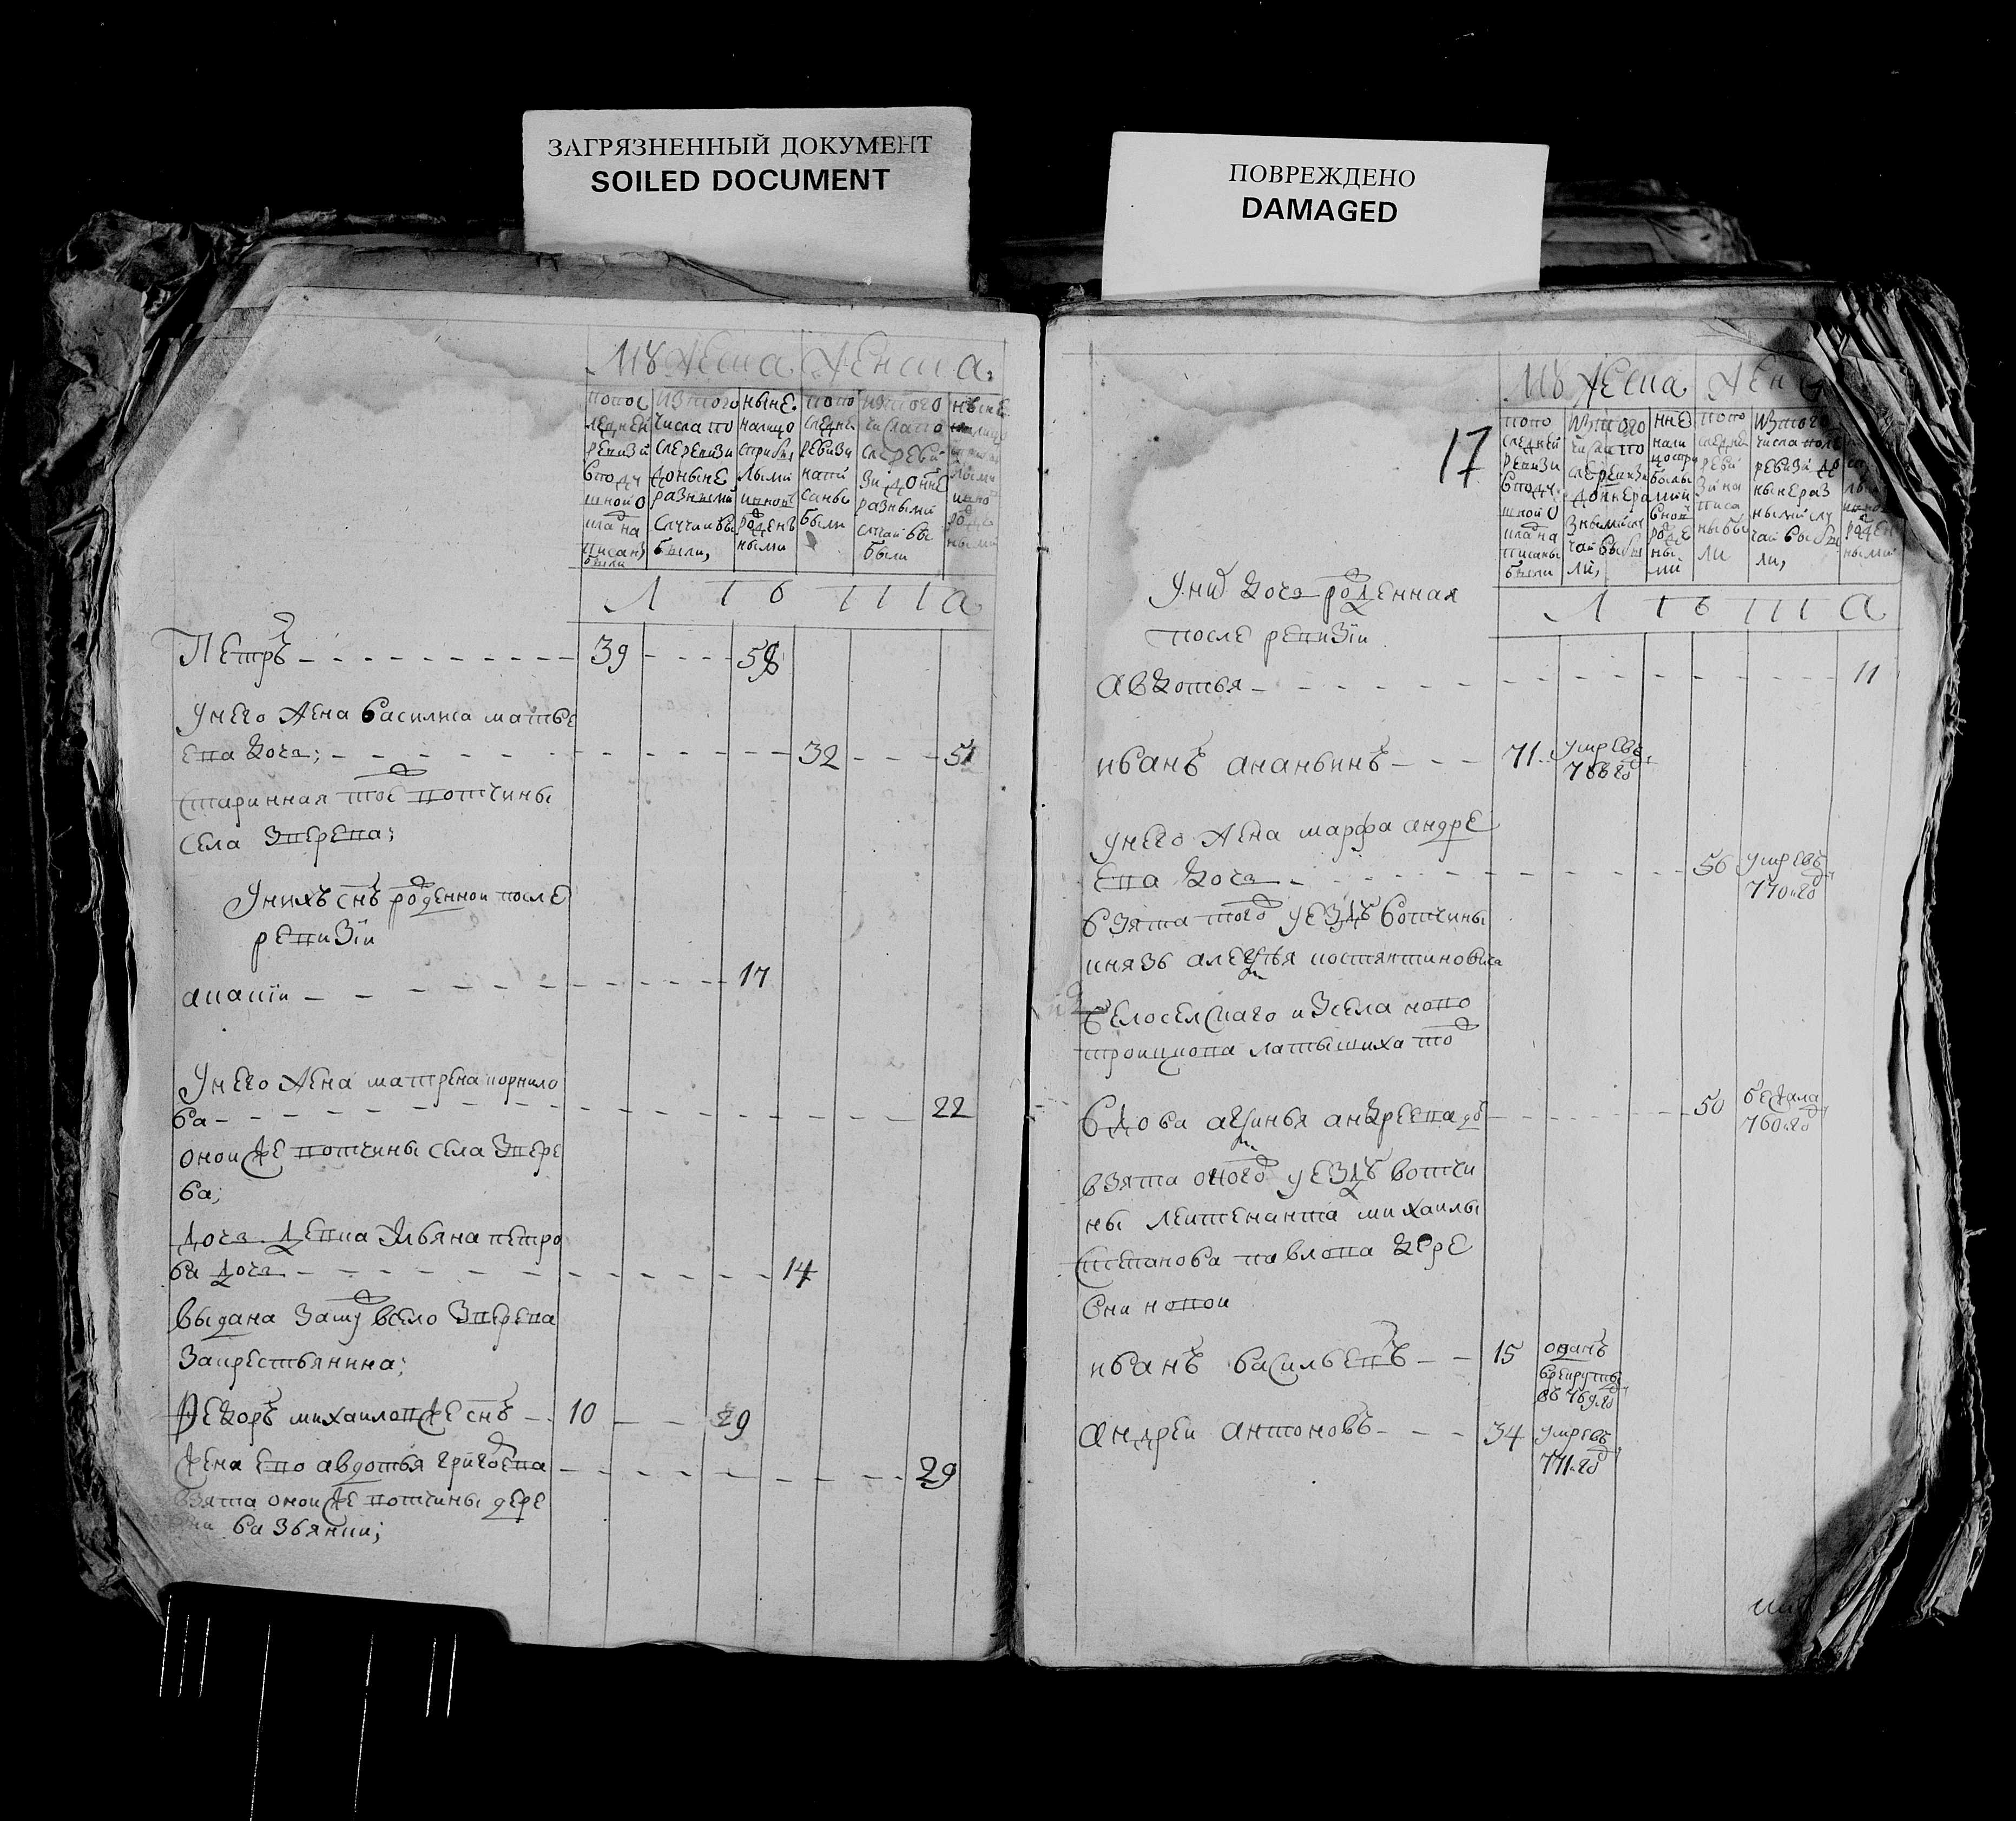 ЗАГРЯЗНЕННЫЙ ДОКУМЕНТ
SOILED DOCUMENT
ПОВРЕЖДЕНО
DAMAGED
мужеска женска
попос
ледней
ревизи
вподу
шной о
кладъ на
писаны
были
изтого
числа по
сле ревизи
доныне
разными
случаи вы
были,
ныне
налицо
сприбы
лыми
ивновь
рожденъ
ными
попо
следней
ревизи
напи
саны
были
изтого
числа по
сле реви
зи до нне
разными
случаи вы
были
ныне
лета
Петръ 39 58
унего жена василиса матвѣ
ева дочь; 32 51
старинная той вотчины
села зверева;
унихъ снъ рожденной после
ревизїи
ананїи 17
унего жена матрена корнило
ва 22
оной же вотчины села звере
ва;
дочь девка ульяна петро
ва дочь 14
выдана замуж всело зверева
закрестьянина;
Федоръ михаилов же снъ 10 29
жена ево авдотья григорева 29
взята оной же вотчины дере
вни вазьянки;
17
мужеска
попо
следней
ревизи
вподу
шной о
кладъ на
писаны
были
изтого
числа по
сле ревизи
донне ра
зными слу
чаи выбы
ли,
нне
нали
цо спри
былы
ми
вновь
рожде
ны
ми
попо
следней
реви
зи на
писа
ны бы
ли
изтого
числа после
ревизи до
ныне раз
ными слу
чаи выбы
ли,
рожден
ными
лета
уних дочь рожденная
после ревизїи
авдотья 11
иванъ ананьинъ 71 умре въ
766 год
унего жена марфа андре
ева дочь 56 умре въ
770 год
взята того уезду вотчины
князь алексѣя костянтиновича
белоселскаго изсела ново
троицкова латышиха тож
вдова аксинья андреева до 50 бежала
760 год
взята оного уезду вотчи
ны леитенанта михаилы
степанова павлова дере
вни новой
иванъ васильевъ 15 отданъ
врекруты
въ 769 год
андреи антоновъ 34 умре въ
771 год